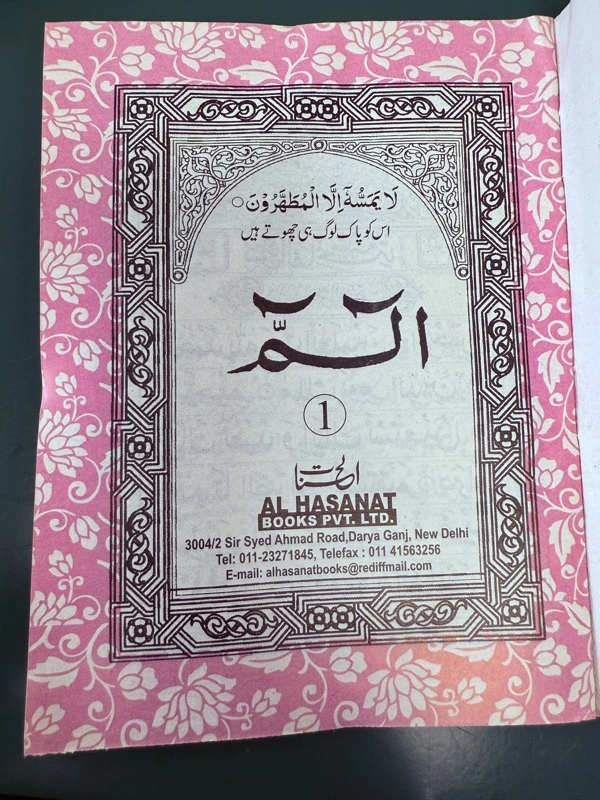 لَا يَمَسُّهٗٓ اِلَّا الْمُطَهَّرُوْنَ ○
اس کو پاک لوگ ہی چھوتے ہیں
الٓمّٓ
1
الحسنات
AL HASANAT
BOOKS PVT. LTD.
3004/2 Sir Syed Ahmad Road,Darya Ganj, New Delhi
Tel: 011-23271845, Telefax : 011 41563256
E-mail: alhasanatbooks@rediffmail.com